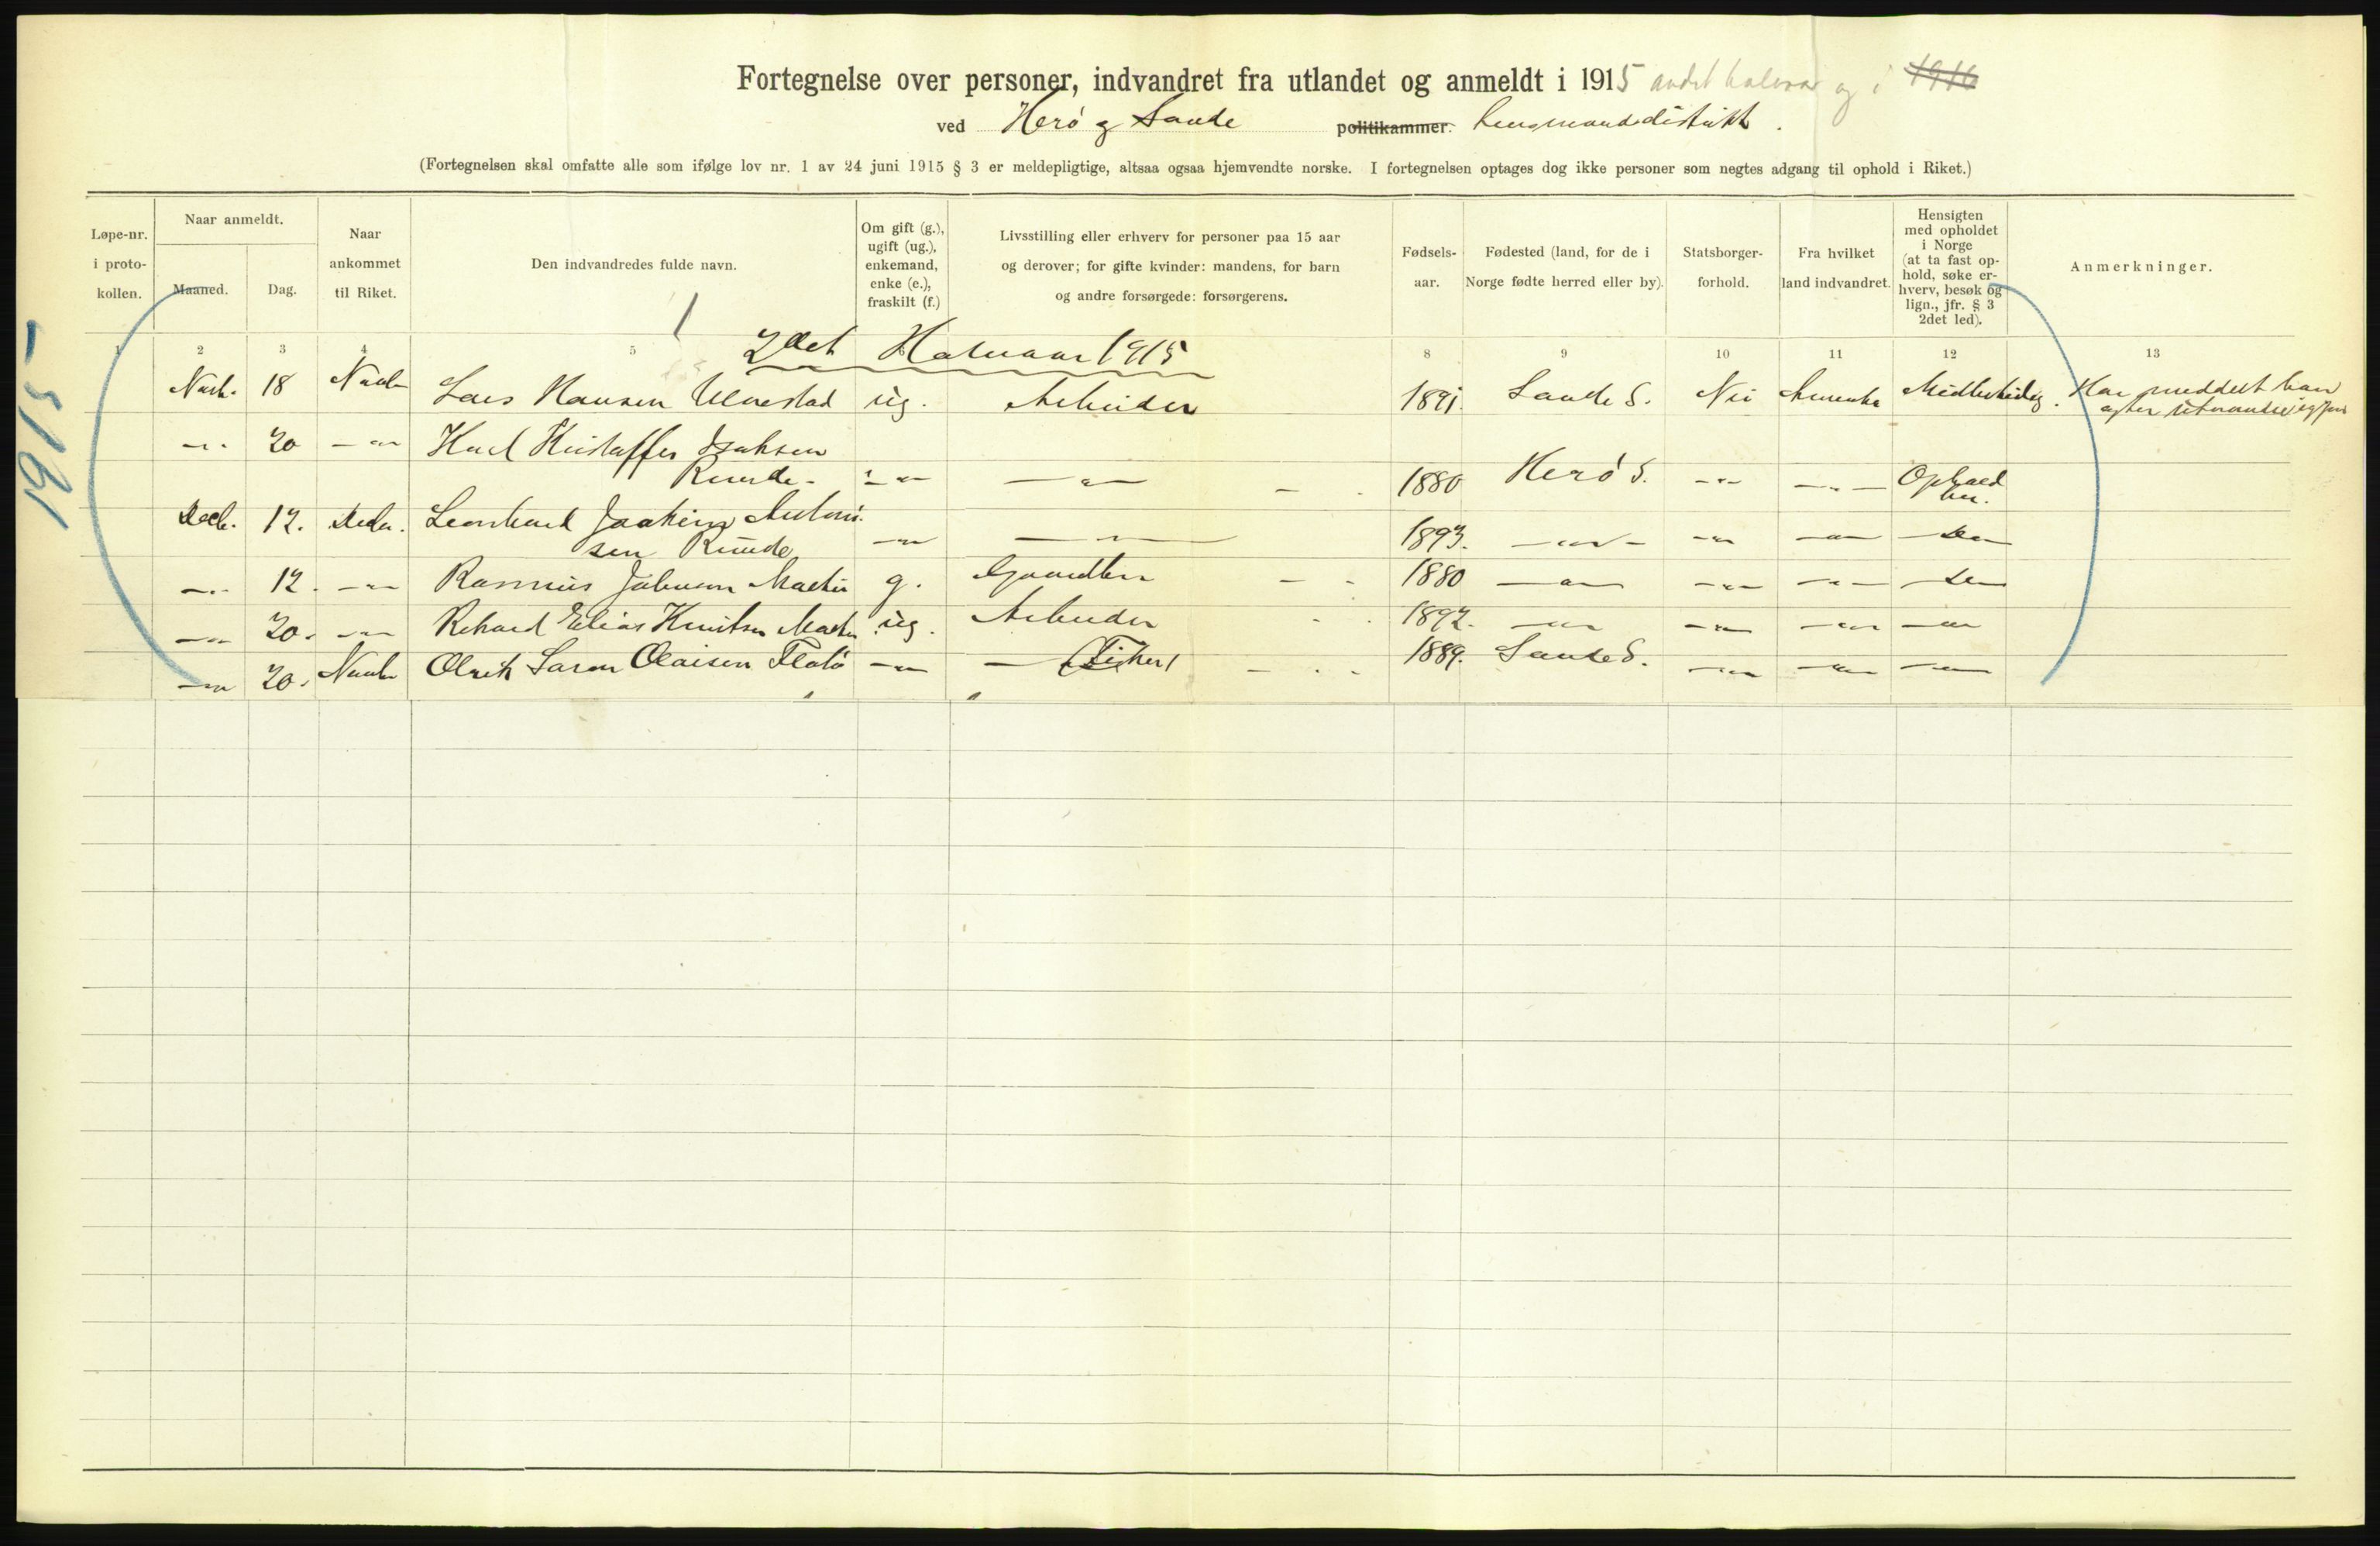 Fortegnelse over personer, indvandret fra utlandet og anmeldt i 1915 andet halvaar og i 1916
ved Herö og Sande politikammer. Lensmandsdistrikt.
(Fortegnelsen skal omfatte alle som ifølge lov nr. 1 av 24 juni 1915 § 3 er meldepligtige, altsaa ogsaa hjemvendte norske. I fortegnelsen optages dog ikke personer som negtes adgang til ophold i Riket.)
Løpe-nr. i proto- kollen.
Naar anmeldt.
Maaned. Dag.
Naar ankommet til Riket.
Den indvandredes fulde navn.
Om gift (g.), ugift (ug.), enkemand, enke (e.), fraskilt (f.)
Livsstilling eller erhverv for personer paa 15 aar
og derover; for gifte kvinder: mandens, for barn
og andre forsørgede: forsørgerens.
Fødsels- aar.
Fødested (land, for de i
Norge fødte herred eller by).
Statsborger- forhold.
Fra hvilket land indvandret.
Hensigten med opholdet i Norge (at ta fast op- hold, søke er- hverv, besøk og lign., jfr. § 3 2det led).
Anmerkninger.
1 2 3 4 5 8 9 10 11 12 13
2det Halvaar 1915
1915
18 Lars Hansen ug. Arbeider 1891. Sande S. Amerika Midlertidig. Har meddelt han
agter
-"- 20 -"- Karl Kristoffer Isaksen
Runde -"- -"- 1880 Herö S. -"- -"- Ophold
Decb. 12. Decbr. Leonhard Joakim Antoni-
sen Runde -"- -"- 1893. -"- -"- -"-
-"- 12. -"- Rasmus Johnsen g. 1880 -"- -"- -"-
-"- 20. -"- Rikard Elias Knutsen ug. Arbeider 1892. -"- -"- -"- -"-
-"- 20. Olaisen Flatö -"- - (Fisker) 1889. Sande S. -"- -"- -"-